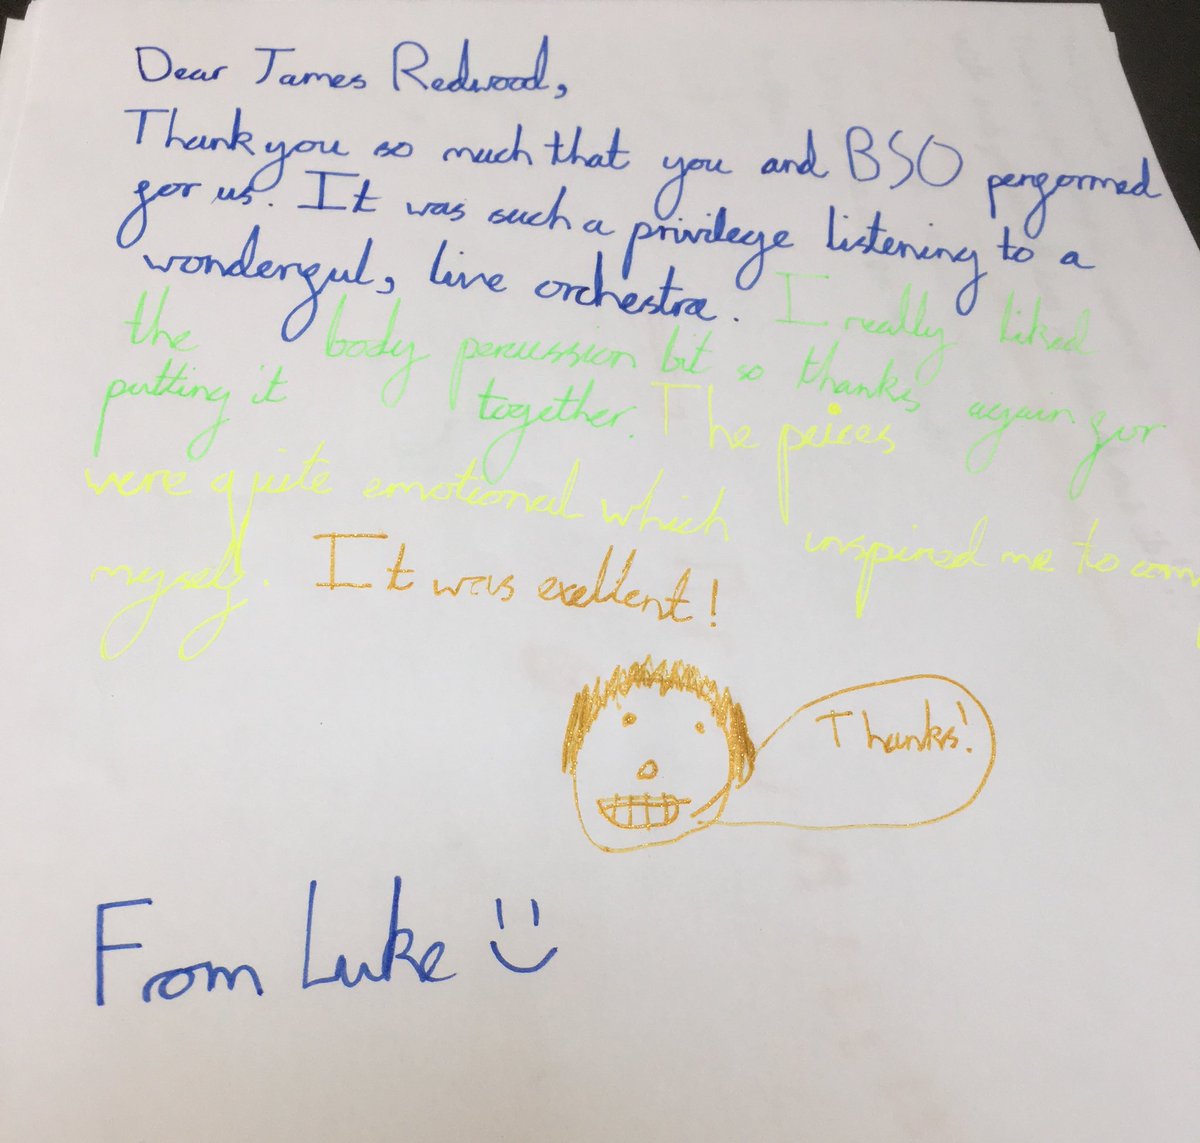 Dear James Redwood,
Thank you so much that you and BSO performed
for us. It was such a privilege listening to a
wonderful, live orchestra. I really liked
the body percussion bit so thanks again for
putting it together. The peices
were quite emotional which inspired me to com
myself. It was exellent!
Thanks!
From Luke